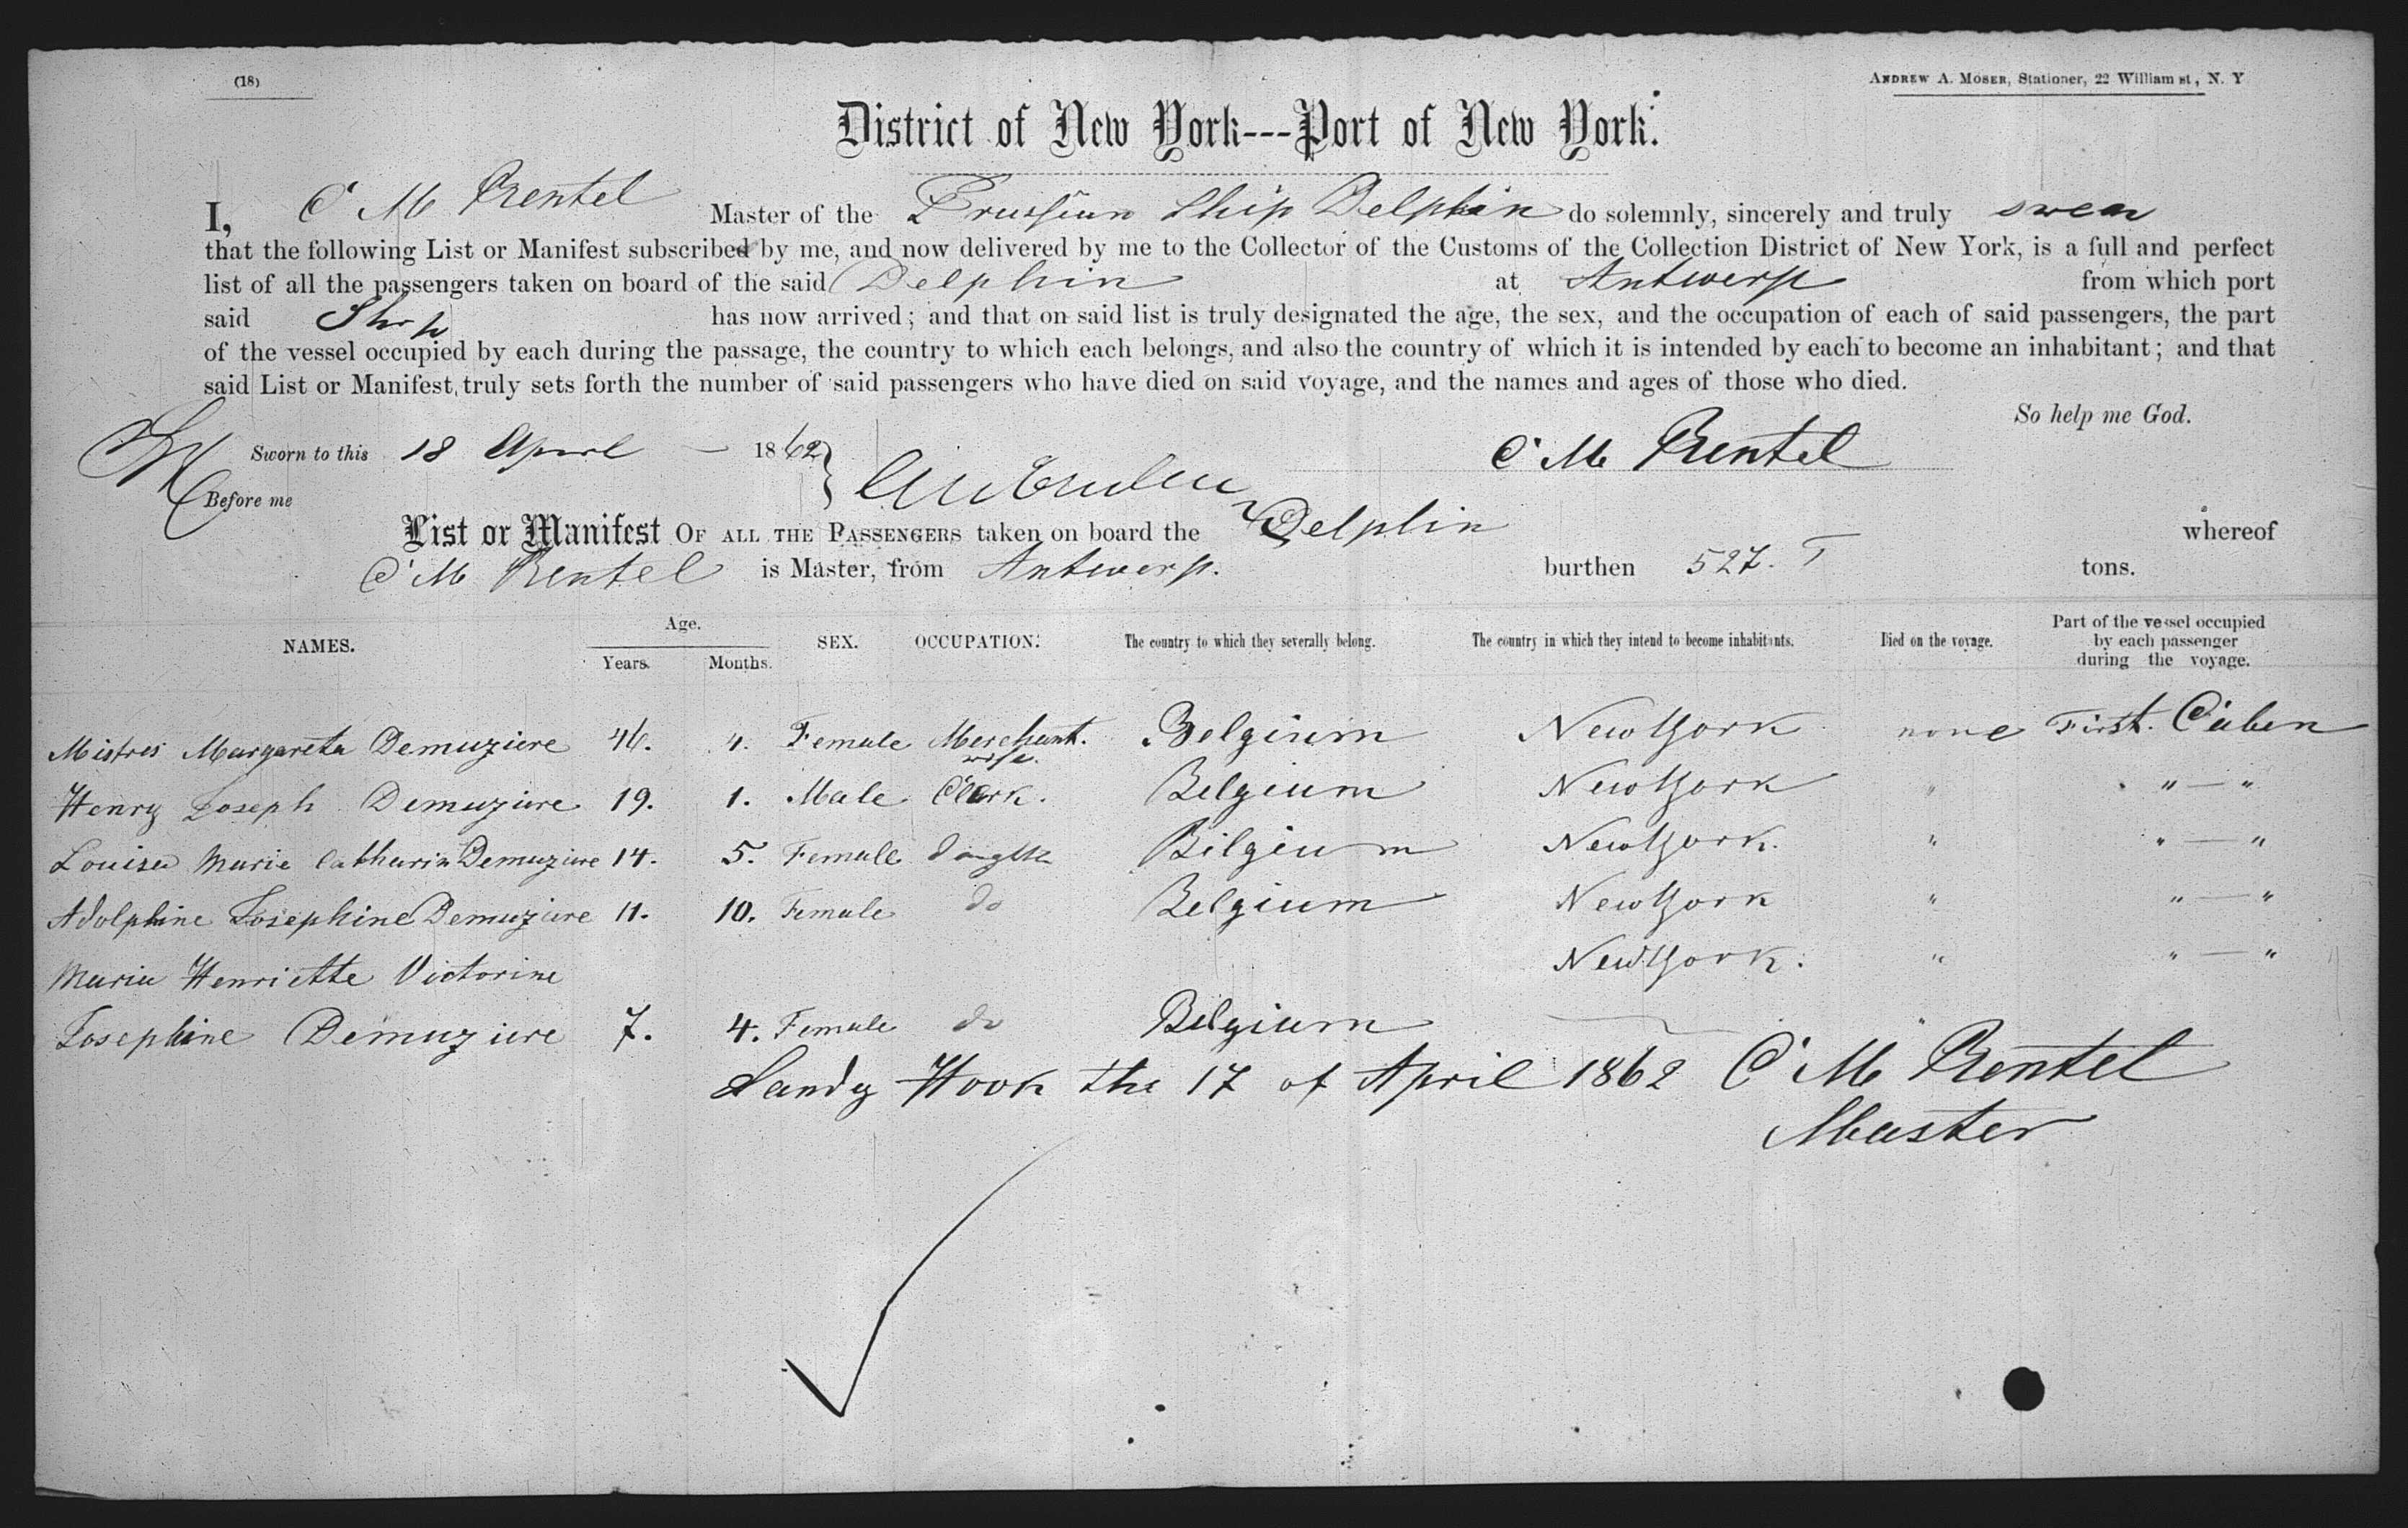 (18)
ANDREW A. MOSER, Stationer, 22 William st, N. Y
District of New York---Port of New York.
I, C M Rentel Master of the Prussian Ship Delphin do solemnly, sincerely and truly swear
that the following List or Manifest subscribed by me, and now delivered by me to the Collector of the Customs of the Collection District of New York, is a full and perfect
list of all the passengers taken on board of the said Delphin at Antwerp from which port
said Ship has now arrived; and that on said list is truly designated the age, the sex, and the occupation of each of said passengers, the part
of the vessel occupied by each during the passage, the country to which each belongs, and also the country of which it is intended by each to become an inhabitant; and that
said List or Manifest, truly sets forth the number of said passengers who have died on said voyage, and the names and ages of those who died.
So help me God.
Sworn to this 18 April 1862 C M Rentel
Before me
List or Manifest OF ALL THE PASSENGERS taken on board the Delphin whereof
C M Rentel is Master, from Antwerp. burthen 527. T tons.
NAMES. Age. Years. Months. SEX. OCCUPATION. The country to which they severally belong. The country in which they intend to become inhabitants. Died on the voyage. Part of the vessel occupied by each passenger during the voyage.
Mistres Margareta Demuziere 46. 4. Female Merchant. wife. Belgium New York none First. Caben
Henry Joseph Demuziere 19. 1. Male Clerk. Belgium New York " " — "
Louisa Maria Catharin Demuziere 14. 5. Female daughter Bilgium New York. " " — "
Adolphine Josephine Demuziere 11. 10. Female do Belgium New York " " — "
Maria Henriette Victorine New York. " " — "
Josephine Demuziere 7. 4. Female do Belgium "
Sandy Hook the 17 of April 1862 C M Rentel
Master